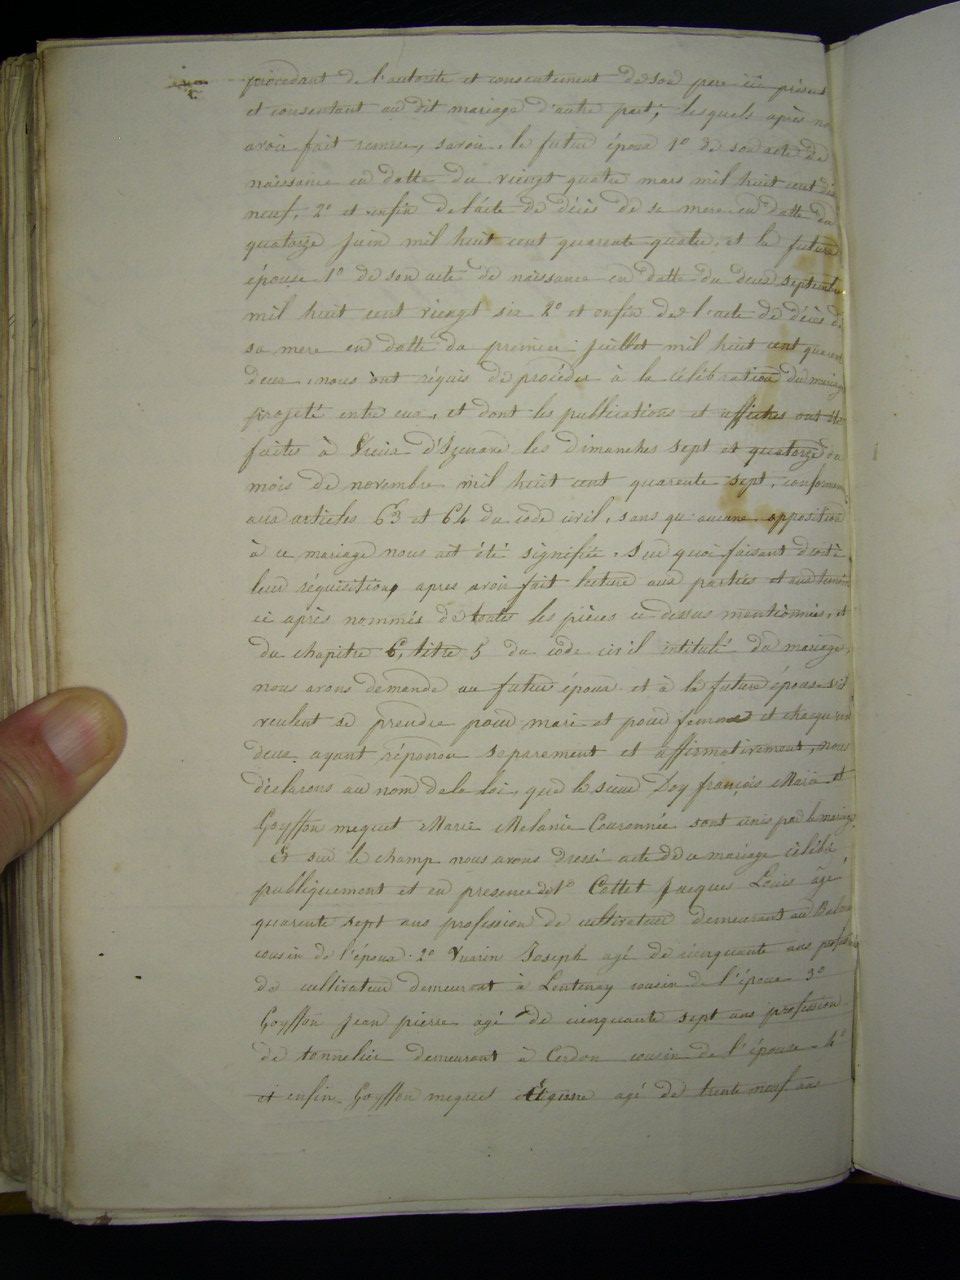 procédant de l'autorité et consentement de son pere ici présent
et consentant au dit mariage d'autre part, lesquels après
avoir fait remise, savoir, le futur époux 1º de son acte de
naissance en datte du viengt quatre mars mil huit cent dix
neuf, 2º et enfin de l'acte de décès de sa mere en datte du
quatorze juin mil huit cent quarente quatre, et la future
épouse 1º de son acte de naissance en datte du deux septembre
mil huit cent viengt six 2º et enfin de l'acte de décès de
sa mere en datte du premier juillet mil huit cent quarente
deux, nous ont réquis de procéder à la célébration du mariage
projeté entre eux, et dont les publications et affiches ont été
faites à Vieux d'Izenave les dimanches sept et quatorze du
mois de novembre mil huit cent quarente sept, conforme
aux articles 63 et 64 du code civil, sans qu'aucune opposition
à ce mariage nous ait été signifiée. Sur quoi faisant droit à
leur réquisition, apres avoir fait lecture aux parties et aux témoins
ci après nommés de toutes les pièces ci dessus mentionnées, et
du chapitre 6, titre 5 du code civil intitulé du mariage,
nous avons demandé au futur époux et à la future épouse s'ils
veulent se prendre pour mari et pour femme et chaqu'un
deux ayant répondu separement et affirmativement, nous
déclarons au nom de la loi, que le sieur Loy françois Marie et
Goyffon mequet Marie Melanie Couronnée sont unis par le mariage
Et sur le champ nous avons dressé acte de ce mariage célébré
publiquement et en presence de 1º Cottet Jacques Louis âgé
quarente sept ans profession de cultivateur demeurant au Balmay
cousin de l'époux. 2º Vuarin Joseph agé de cienquante ans profession
de cultivateur demeurant à Lentenay cousin de l'époux 3º
Goyffon Jean pierre agé de cienquante sept ans profession
de tonnelier demeurant à Cerdon cousin de l'épouse 4º
et enfin Goyffon mequet agé de trente neuf ans